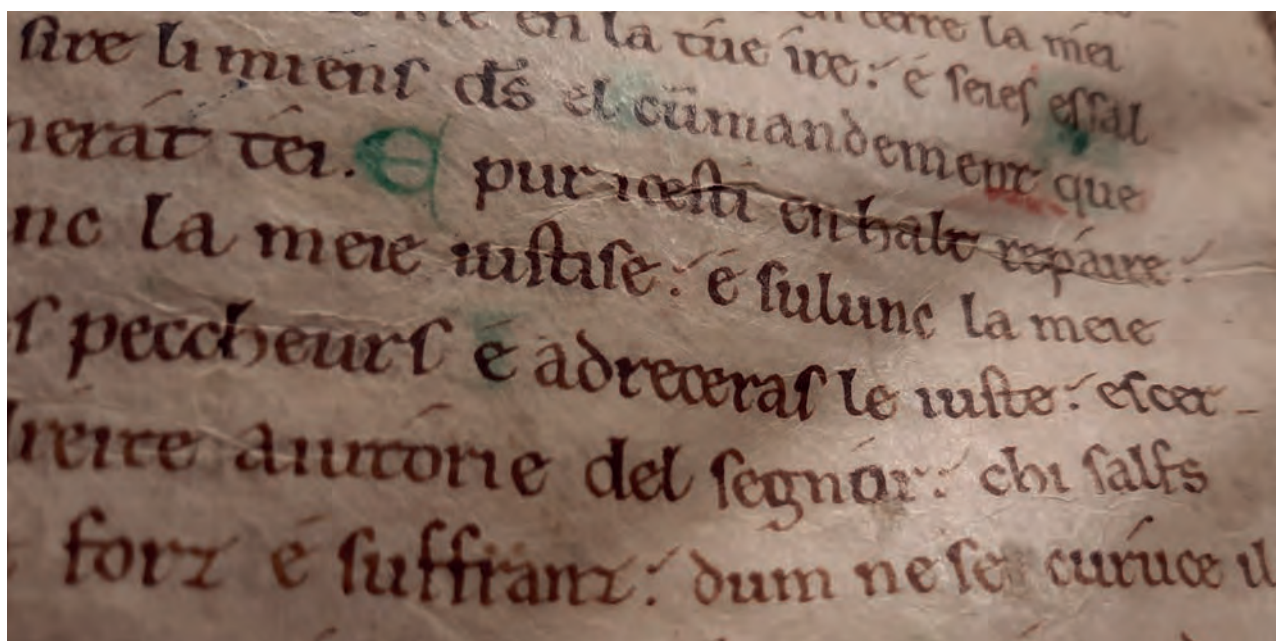 terre la mei
en la túe ire: é ſeieſ eſſal
ſire li mienſ dſ̄ el cūmandement que
nerát téi. E pur iceſti en halt repáire:
nc la meie iuſtiſe: é ſulunc la meie
ſ peccheurſ é adreceraſ le iuſte: eſcer-
reite aiutórie del ſegnór: chi ſalfs
forz é ſuffranz: dum ne ſe curuce il